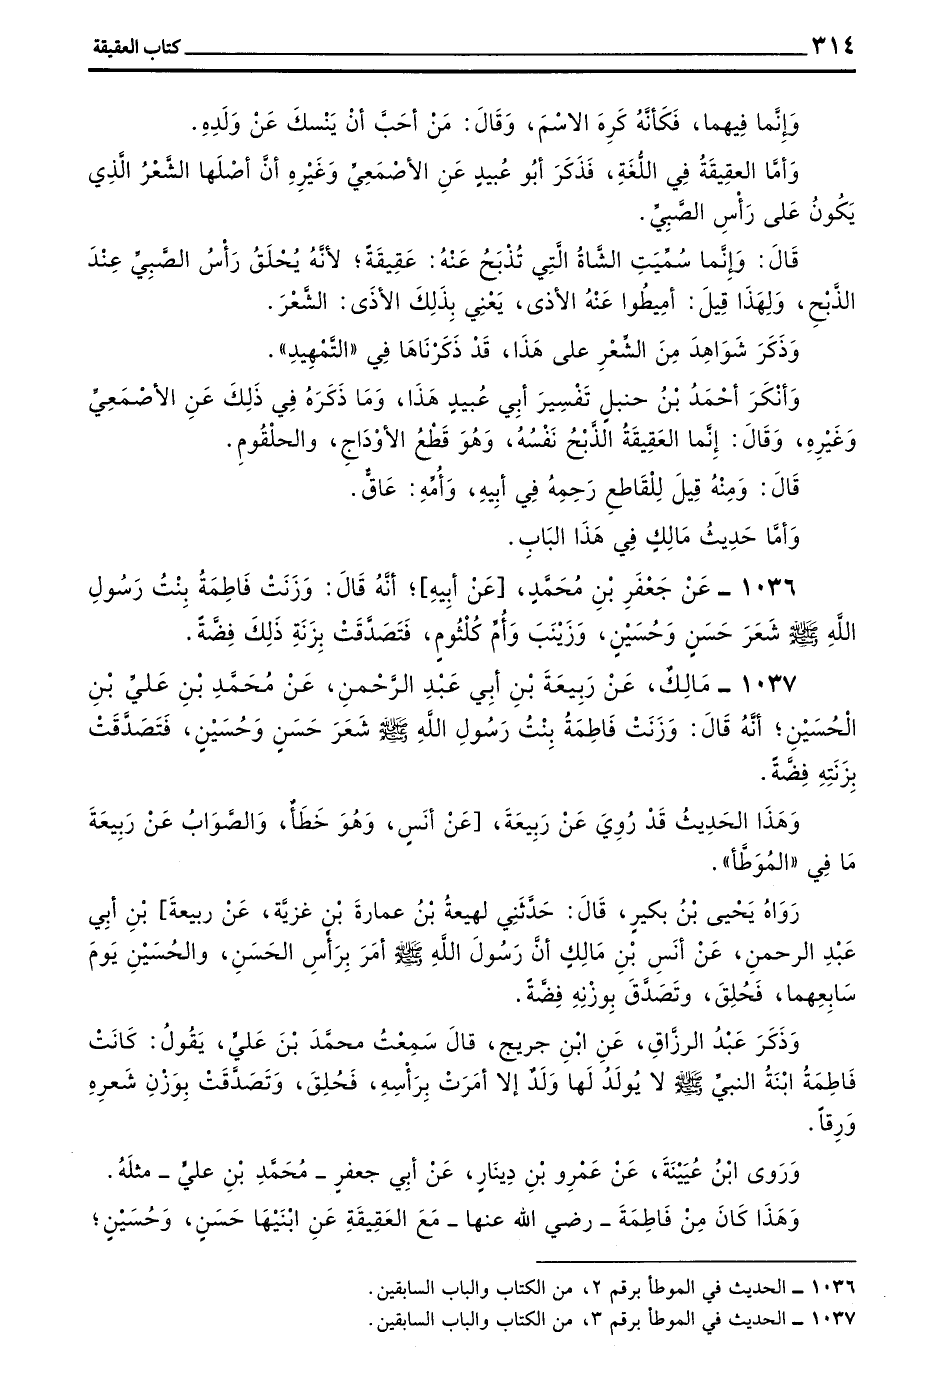 ٣١٤ كتاب العقيقة
وَإِنَّما فِيهما، فَكَأنَّهُ كَرِهَ الاسْمَ، وَقَالَ: مَنْ أحَبَّ أنْ يَنْسكَ عَنْ وَلَدِهِ.
وَأمَّا العقِيقَةُ فِي اللُّغَةِ، فَذَكَرَ أبُو عُبيدٍ عَنِ الأصْمَعِيِّ وَغَيْرِهِ أنَّ أصْلَها الشَّعْرُ الَّذِي
يَكُونُ عَلى رَأْسِ الصَّبِيِّ.
قَالَ: وَإِنَّما سُمِّيَتِ الشَّاةُ الَّتِي تُذْبَحُ عَنْهُ: عَقِيقَةً؛ لأنَّهُ يُحْلَقُ رَأْسُ الصَّبِيِّ عِنْدَ
الذَّبْحِ، وَلِهَذَا قِيلَ: أمِيطُوا عَنْهُ الأذى، يَعْنِي بِذَلِكَ الأذَى: الشَّعْرَ.
وَذَكَرَ شَوَاهِدَ مِنَ الشِّعْرِ على هَذَا، قَدْ ذَكَرْنَاهَا فِي «التَّمْهِيدِ».
وَأنْكَرَ أحْمَدُ بْنُ حنبلٍ تَفْسِيرَ أبي عُبيدٍ هَذَا، وَمَا ذَكَرَهُ فِي ذَلِكَ عَنِ الأصْمَعِيِّ
وَغَيْرِهِ، وَقَالَ: إِنَّما العَقِيقَةُ الذَّبْحُ نَفْسُهُ، وَهُوَ قَطْعُ الأوْدَاجِ، والحلْقُومِ.
قَالَ: وَمِنْهُ قِيلَ لِلْقَاطعِ رَحِمِهُ فِي أبيهِ، وَأُمِّهِ: عَاقٌّ.
وَأمَّا حَدِيثُ مَالِكٍ فِي هَذَا البَابِ.
١٠٣٦ ـ عَنْ جَعْفَرِ بْنِ مُحَمَّدٍ، [عَنْ أبِيهِ]؛ أنَّهُ قَالَ: وَزَنَتْ فَاطِمَةُ بِنْتُ رَسُولِ
اللَّهِ ﷺ شَعَرَ حَسَنٍ وَحُسَيْنٍ، وَزَيْنَبَ وَأُمِّ كُلْثُومٍ، فَتَصَدَّقَتْ بِزِنَةِ ذَلِكَ فِضَّةً.
١٠٣٧ ـ مَالِكٌ، عَنْ رَبِيعَةَ بْنِ أبي عَبْدِ الرَّحْمنِ، عَنْ مُحَمَّدِ بْنِ عَليِّ بْنِ
الْحُسَيْنِ؛ أنَّهُ قَالَ: وَزَنَتْ فَاطِمَةُ بِنْتُ رَسُولِ اللَّهِ ﷺ شَعَرَ حَسَنٍ وَحُسَيْنٍ، فَتَصَدَّقَتْ
بِزِنَتِهِ فِضَّةً.
وَهَذَا الحَدِيثُ قَدْ رُوِيَ عَنْ رَبِيعَةَ، [عَنْ أنَسٍ، وَهُوَ خَطَأٌ، وَالصَّوَابُ عَنْ رَبِيعَةَ
مَا فِي «المُوَطَّأ».
رَوَاهُ يَحْيى بْنُ بكيرٍ، قَالَ: حَدَّثَنِي لهيعةُ بْنُ عمارةَ بْنِ غزيَّة، عَنْ ربيعةَ] بْنِ أبي
عَبْدِ الرحمنِ، عَنْ أنَسِ بْنِ مَالِكٍ أنَّ رَسُولَ اللَّهِ ﷺ أمَرَ بِرَأْسِ الحَسَنِ، والحُسَيْنِ يَومَ
سَابِعِهما، فَحُلِقَ، وتَصَدَّقَ بِوزْنِهِ فِضَّةً.
وَذَكَرَ عَبْدُ الرزَّاقِ، عَنِ ابْنِ جريجٍ، قالَ سَمِعْتُ محمَّدَ بْنَ عَليٍّ، يَقُولُ: كَانَتْ
فَاطِمَةُ ابْنَةُ النبيِّ ﷺ لا يُولَدُ لَها وَلَدٌ إلا أمَرَتْ بِرَأْسِهِ، فَحُلِقَ، وَتَصَدَّقَتْ بِوَزْنِ شَعرِهِ
وَرِقاً.
وَرَوى ابْنُ عُيَيْنَةَ، عَنْ عَمْرِو بْنِ دِينَارٍ، عَنْ أبي جعفرٍ ـ مُحَمَّدِ بْنِ عليٍّ ـ مثلَهُ.
وَهَذَا كَانَ مِنْ فَاطِمَةَ ـ رضي الله عنها ـ مَعَ العَقِيقَةِ عَنِ ابْنَيْهَا حَسَنٍ، وَحُسَيْنٍ؛
١٠٣٦ ـ الحديث في الموطأ برقم ٢، من الكتاب والباب السابقين.
١٠٣٧ ـ الحديث في الموطأ برقم ٣، من الكتاب والباب السابقين.